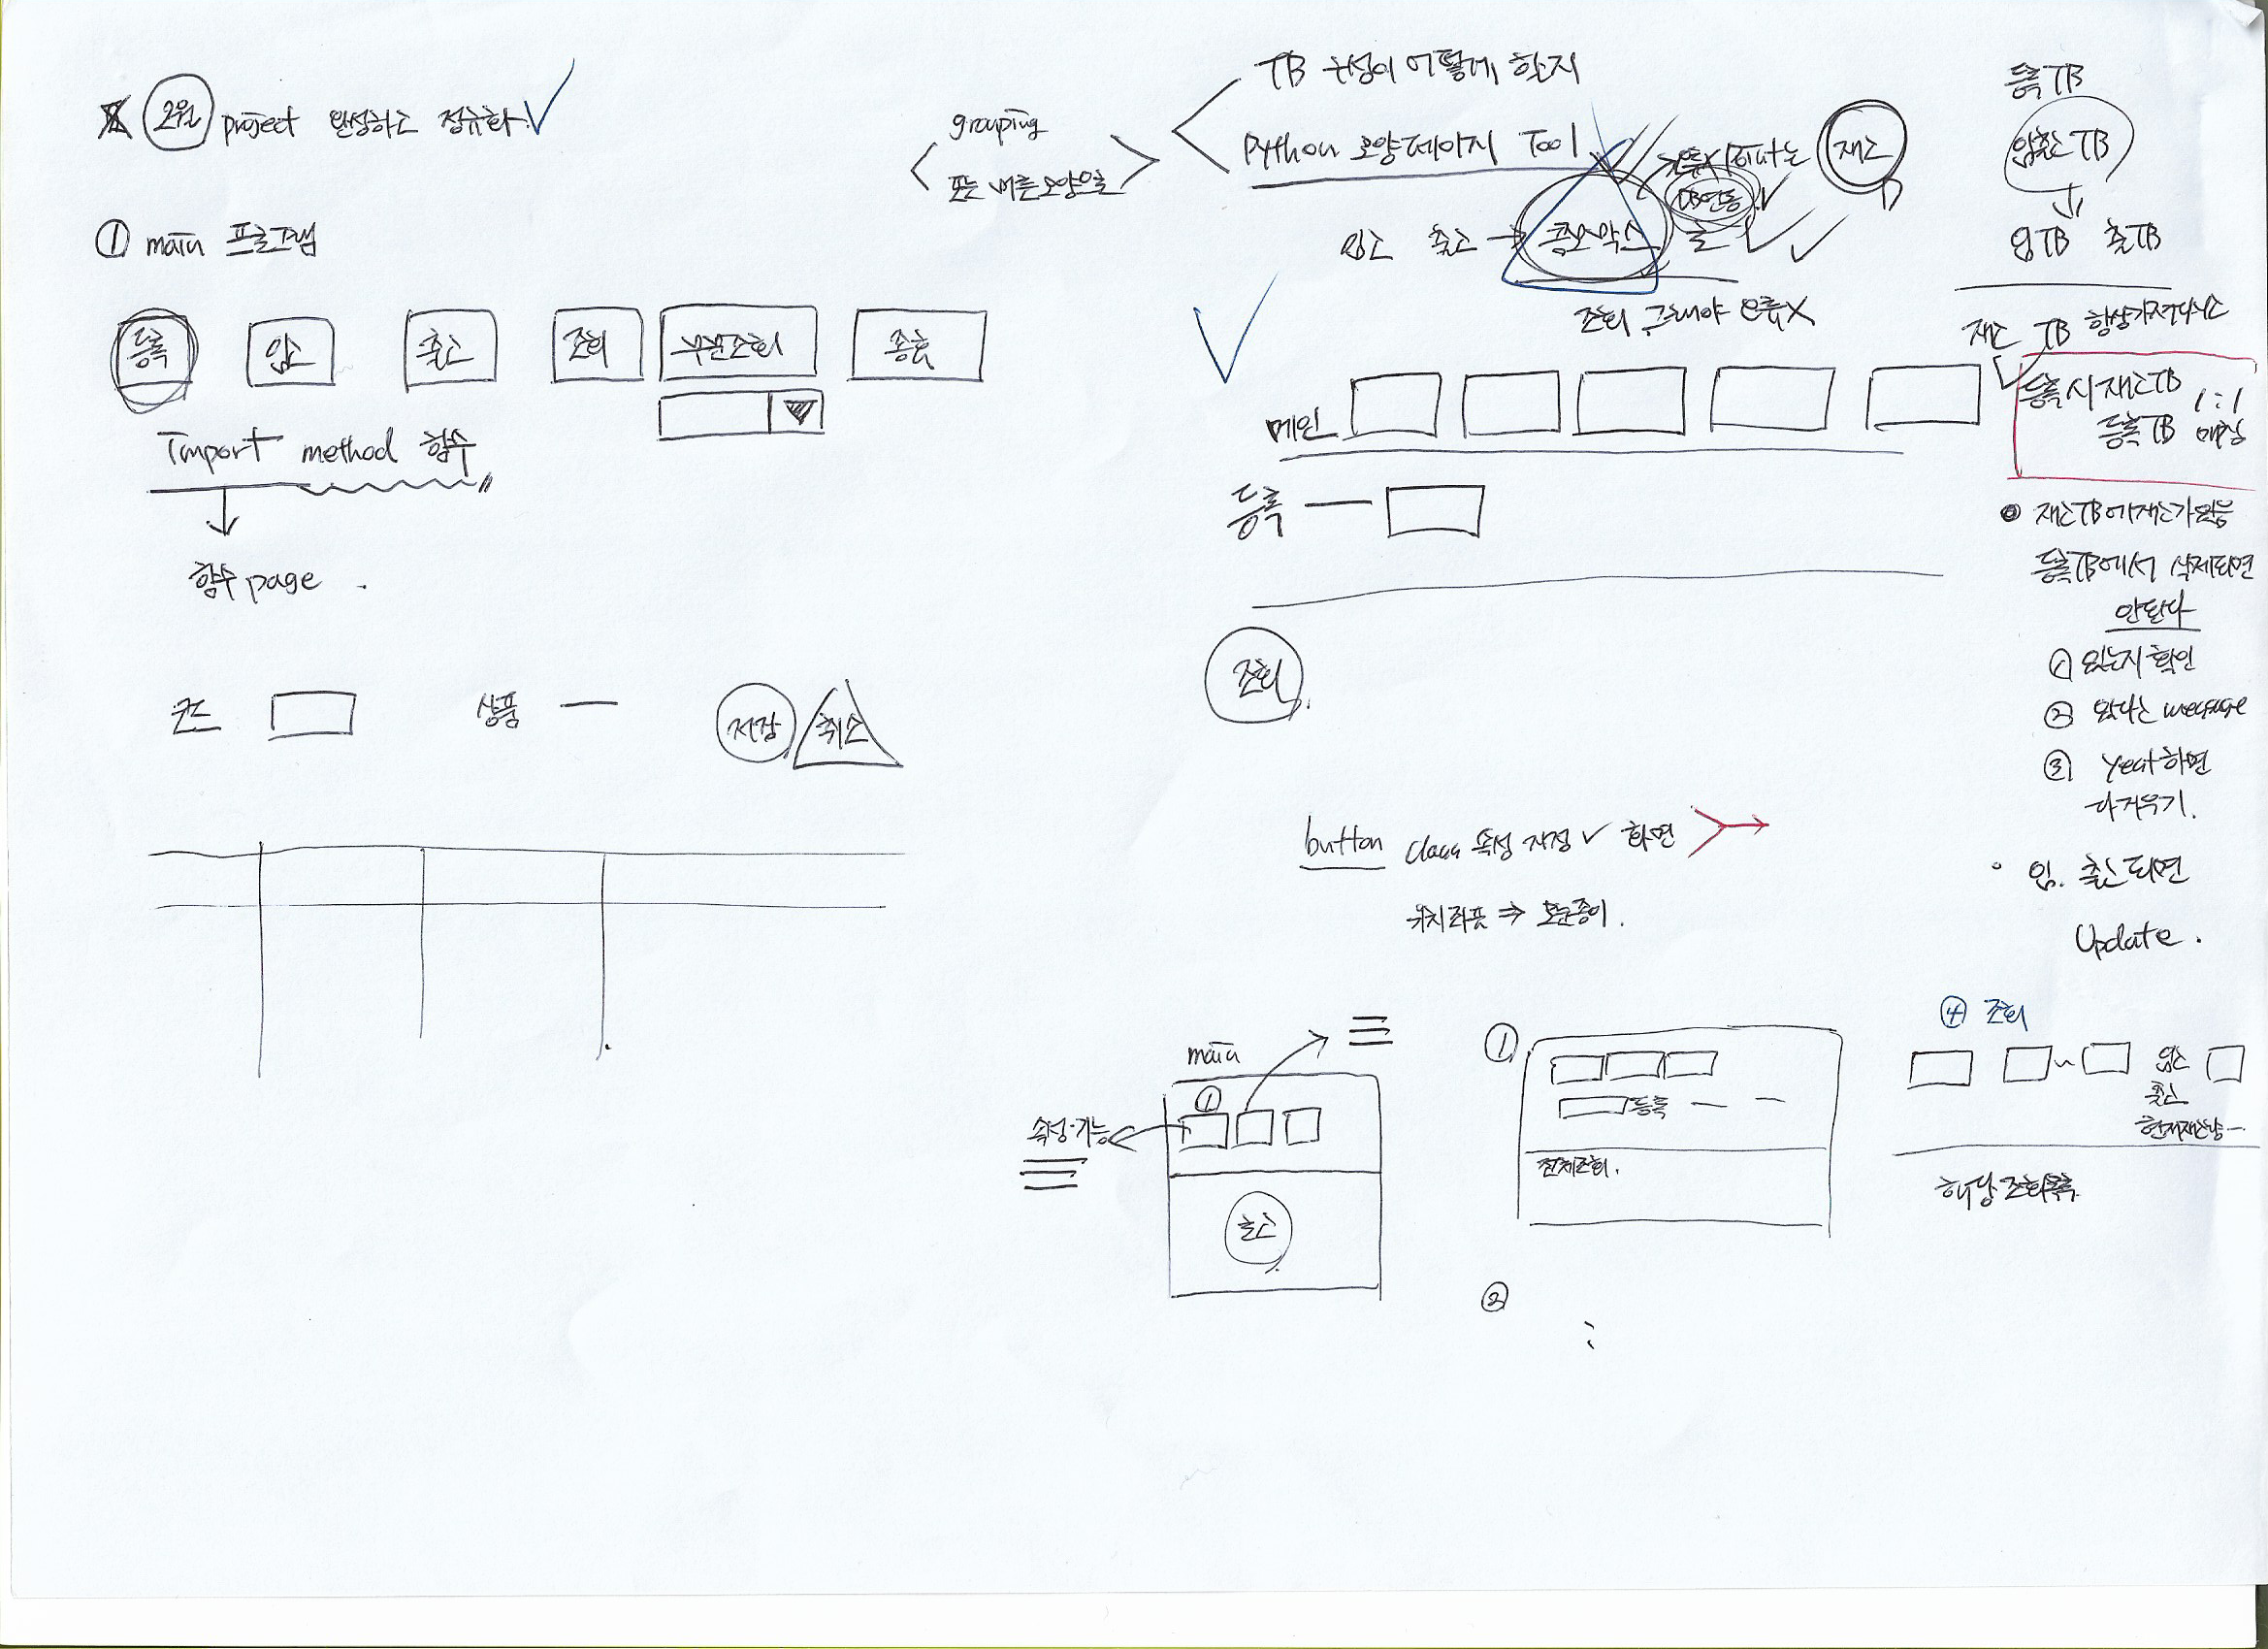 2월 project 완성하고 정규화
① main 프로그램
등록 입고 출고 조회 부분조회 종료
Import method 함수
함수 page .
코드 상품 저장 취소
grouping
또는 버튼모양으로
TB 구성이 어떻게 한지
Python 모양 페이지 Tool
재고
DB연동
입고 출고 → 콤보박스 로
조회 그래야 오류X
메인
등록
조회
button class 속성 지정 화면
위치 좌표 ⇒ 모눈종이 .
main
①
속성·기능
출고
①
등록
전체조회 .
②
등록 TB
입출고 TB
입TB 출TB
재고 TB 항상 가져다
등록시 재고TB
등록TB 1:1
재고TB에 재고가 있음
등록TB에서 삭제되면
안된다
① 있는지 확인
② 있다는 message
③ 하면
다 지우기 .
입. 출고 되면
Update .
④ 조회
~ 입고
출고
현재재고량
해당 조회목록